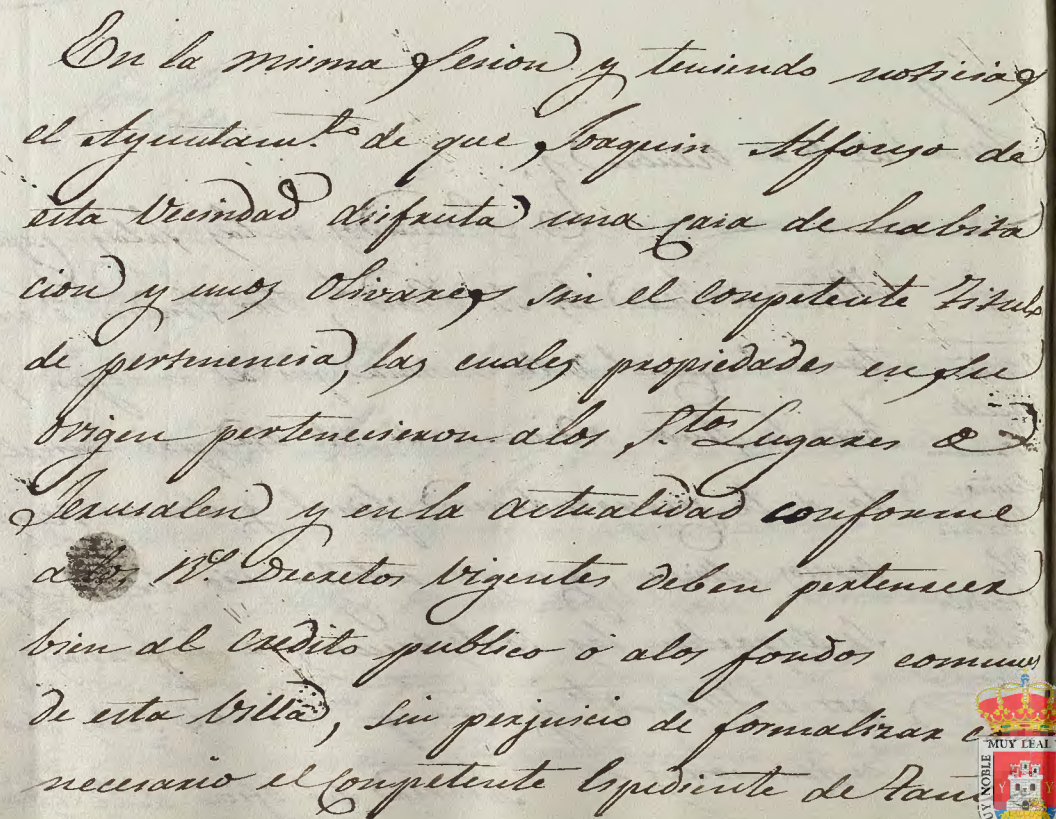 En la misma Sesion y teniendo noticias
el Ayuntam.to de que Joaquin Alfonso de
esta Vecindad disfruta una Casa de habita
cion y unos Olivares sin el Conpetente Titulo
de pertenencia, las cuales propiedades en su
Origen pertenecieron a los S.tos Lugares de
Jerusalen y en la actualidad conforme
a los R.s Decretos Vigentes deben pertenecer
bien al Credito publico ó a los fondos comunes
de esta Villa, sin perjuicio de formalizar
necesario el Conpetente Espediente de
MUY NOBLE
MUY LEAL